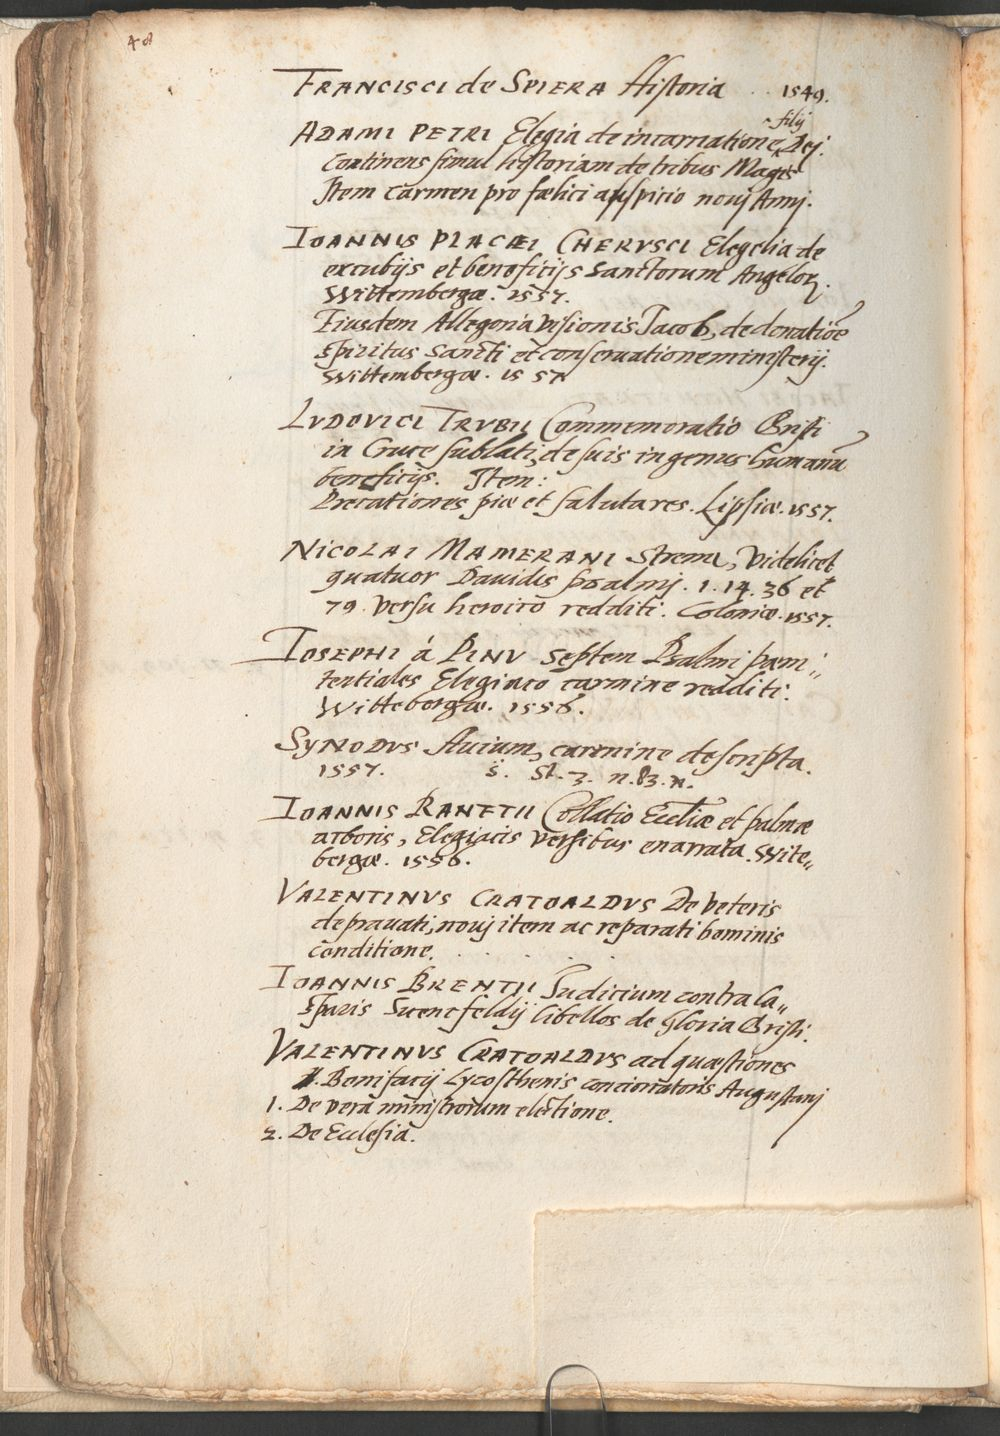 48
FRANCISCI de SPIERA Historia . . 1549.
ADAMI PETRI Elegia de incarnatione filij Dej.
Continens simul historiam de tribus Magis
Item Carmen pro fœlici auspitio novj Annj.
IOANNIS PLACÆI CHERVSCI Elegelia de
excubijs et beneficijs Sanctorum Angeloꝝ.
Wittembergæ. 1557.
Eiusdem Allegoria visionis Jacob, de donatiōe
Spiritus Sancti et conservatione ministerij.
Wittembergæ. 1557
LVDOVICI TRVBII Commemoratio Christi
in Cruce sublati, de suis in genus humanū
beneficijs. Item:
Precationes piæ et salutares. Lipsiæ. 1557.
NICOLAI MAMERANI Strena, videlicet
quatuor Davidis psalmj. 1. 14. 36 et
79. versu heroico redditi. Coloniæ. 1557.
IOSEPHI á PINV Septem Psalmi pœni„
tentiales Elegiaco carmine redditi.
Witteborgæ. 1556.
SYNODVS Avium, carmine descripta.
1557. S. St. 3. n. 83. n.
IOANNIS RANETII Collatio Eccliæ et palmæ
arboris, Elegiacis versibus enarrata. Wite„
bergæ. 1556.
VALENTINVS CRATOALDVS De veteris
depravati, novj item ac reparati hominis
conditione.
IOANNIS BRENTII Judicium contra Ca„
sparis Suencfeldij libellos de Gloria Christi.
VALENTINVS CRATOALDVS ad quæstiones
Bonifacij Lycosthenis concionatoris Augustanj
1. De vera ministrorum electione.
2. De Ecclesia.